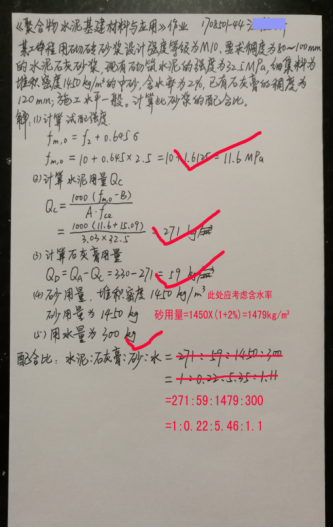 《聚合物水泥基建材料与应用》作业 1708501-443
某工程用砌砖砂浆设计强度等级为M10,要求稠度为80~100mm
的水泥石灰砂浆,现有砌筑水泥的强度为32.5MPa,细集料为
堆积密度1450kg/m³的中砂,含水率为2%,已有石灰膏的稠度为
120mm;施工水平一般。计算此砂浆的配合比。
解:(1)计算试配强度
fm,0 = f2 + 0.645σ
fm,0 = 10 + 0.645×2.5 = 10+1.6125 = 11.6 MPa
(2)计算水泥用量 Qc
Qc = 1000(fm,0 - B) / A·fce
= 1000(11.6+15.09) / 3.03×32.5 = 271 kg/m³
(3)计算石灰膏用量
QD = QA - Qc = 330-271 = 59 kg/m³
(4)砂用量,堆积密度1450 kg/m³ 此处应考虑含水率
砂用量为1450 kg 砂用量=1450X(1+2%)=1479kg/m³
(5)用水量为 300 kg
配合比:水泥:石灰膏:砂:水 = 271:59:1450:300
= 1:0.22:5.35:1.11
=271:59:1479:300
=1:0.22:5.46:1.1